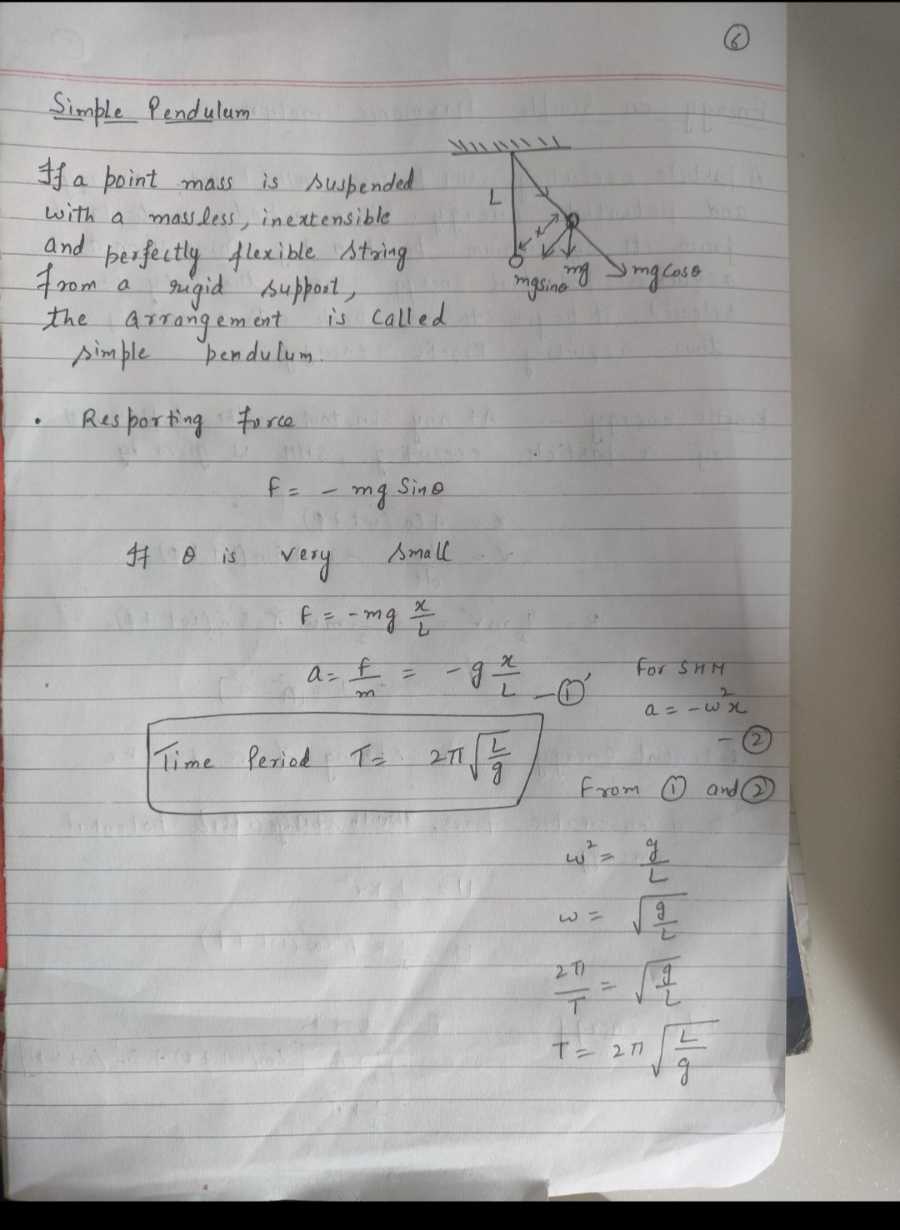 6
Simple Pendulum
If a point mass is suspended
with a massless, inextensible
and perfectly flexible string
from a rigid support,
the arrangement is called
simple pendulum.
L
x
mgsinθ
mg
mgcosθ
• Resporting force
F = - mg Sinθ
If θ is very small
F = - mg x/L
a = f/m = - g x/L - ①
For SHM
a = - ω²x
- ②
Time Period T = 2π√(L/g)
From ① and ②
ω² = g/L
ω = √(g/L)
2π/T = √(g/L)
T = 2π√(L/g)